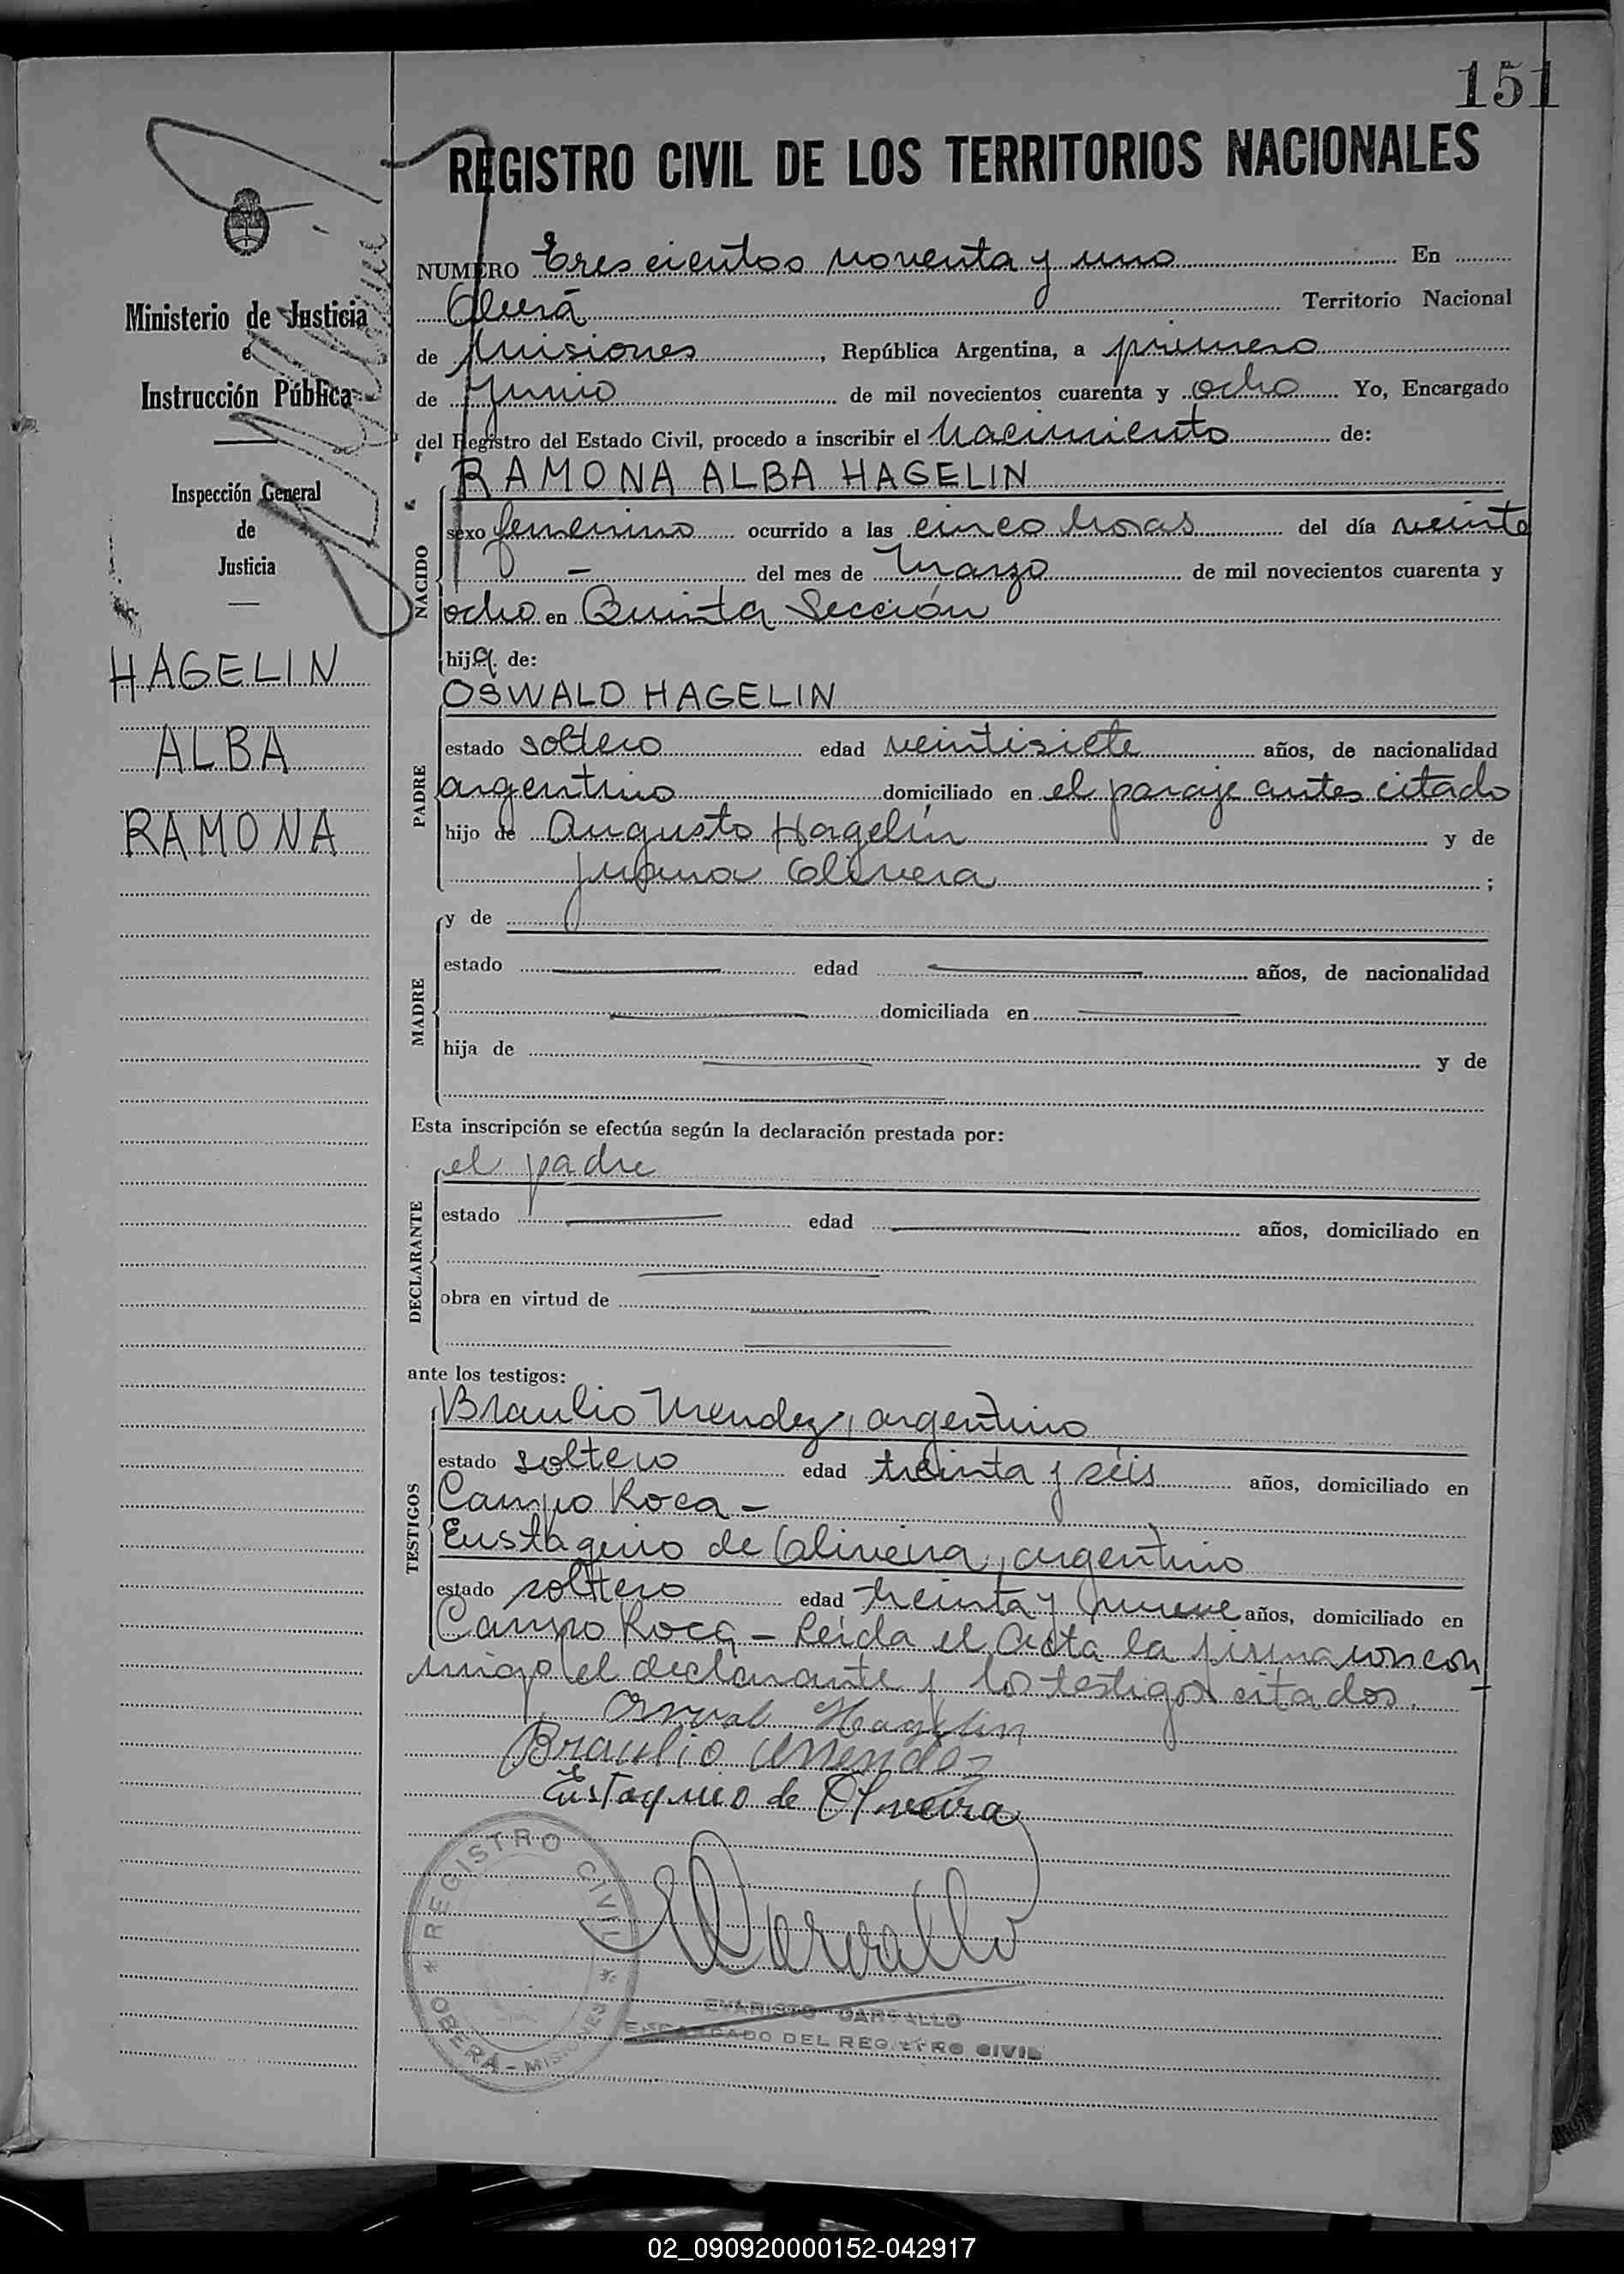 151
REGISTRO CIVIL DE LOS TERRITORIOS NACIONALES
Ministerio de Justicia
e
Instrucción Pública
Inspección General
de
Justicia
HAGELIN
ALBA
RAMONA
NUMERO Trescientos noventa y uno En
Oberá Territorio Nacional
de Misiones, República Argentina, a primero
de Junio de mil novecientos cuarenta y ocho Yo, Encargado
del Registro del Estado Civil, procedo a inscribir el Nacimiento de:
RAMONA ALBA HAGELIN
NACIDO
sexo femenino ocurrido a las cinco horas del día veinte
— del mes de Marzo de mil novecientos cuarenta y
ocho en Quinta Sección
hija de:
OSWALD HAGELIN
PADRE
estado soltero edad veintisiete años, de nacionalidad
argentino domiciliado en el paraje antes citado
hijo de Augusto Hagelin y de
Olivera ;
MADRE
y de
estado edad años, de nacionalidad
domiciliada en
hija de y de
Esta inscripción se efectúa según la declaración prestada por:
el padre
DECLARANTE
estado edad años, domiciliado en
obra en virtud de
ante los testigos:
TESTIGOS
Braulio Mendez, argentino
estado soltero edad treinta y séis años, domiciliado en
Campo Roca -
Eustaquio de Oliveira, argentino
estado soltero edad treinta y nueve años, domiciliado en
Campo Roca - Leída el Acta la firmaron con
migo el declarante y los testigos citados.
Hagelin
Braulio Mendez
Eustaquio de Oliveira
REGISTRO CIVIL
OBERÁ - MISIONES
ECarvallo
EVARISTO CARVALLO
ENCARGADO DEL REGISTRO CIVIL
02_090920000152-042917